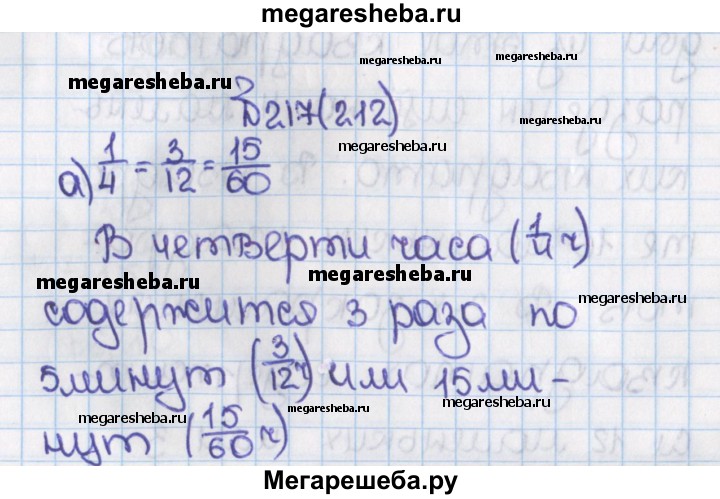 megaresheba.ru
megaresheba.ru
megaresheba.ru
megaresheba.ru
217(212)
megaresheba.ru
megaresheba.ru
а) 1/4 = 3/12 = 15/60
megaresheba.ru
В четверти часа (1/4 ч)
megaresheba.ru
megaresheba.ru
megaresheba.ru
содержится 3 раза по
5 минут (3/12 ч) или 15 ми-
megaresheba.ru
megaresheba.ru
megaresheba.ru
нут (15/60 ч)
Мегарешеба.ру